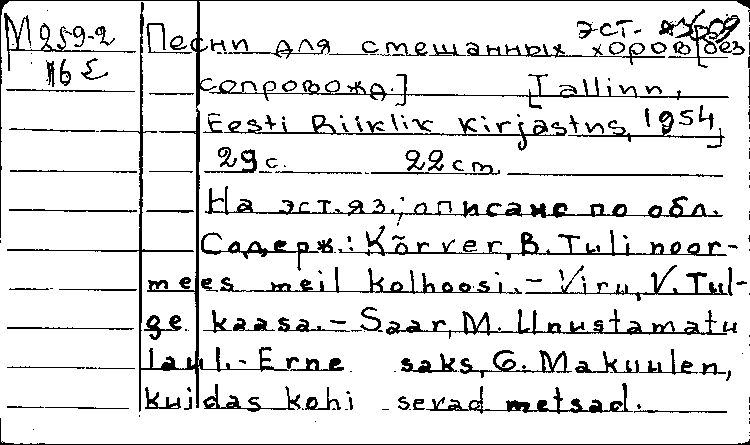 М259-2
16 Σ
эст.
Песни для смешанных хоров [без
сопровожд.] [Tallinn,
Eesti Riiklik Kirjastus, 1954]
29 с. 22 cm.
На эст.яз.; описано по обл.
Содерж.: Kõrver, B. Tuli noor-
mees meil kolhoosi. – Viru, V. Tul-
ge kaasa. – Saar, M. Unustamatu
laul. – Erne saks, G. Ma kuulen,
kuidas kohi sevad metsad.